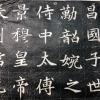 昌國子世
勤韶婉之
侍中太傅
景穆皇帝